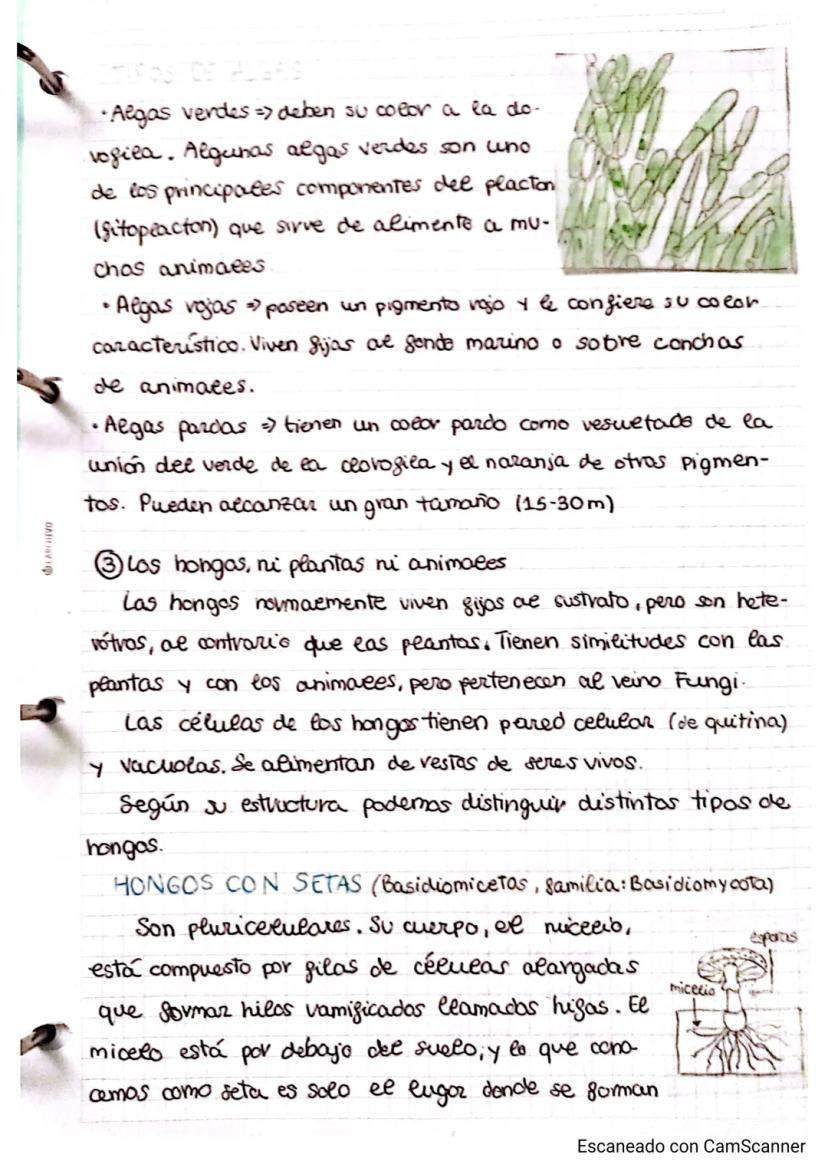 TIPOS DE ALGAS
· Algas verdes => deben su color a la clo-
rofila. Algunas algas verdes son uno
de los principales componentes del placton
(fitoplacton) que sirve de alimento a mu-
chos animales
· Algas rojas => poseen un pigmento rojo y le confiere su color
característico. Viven fijas al fondo marino o sobre conchas
de animales.
· Algas pardas => tienen un color pardo como resultado de la
unión del verde de la clorofila y el naranja de otros pigmen-
tos. Pueden alcanzar un gran tamaño (15-30m)
③ Los hongos, ni plantas ni animales
Los hongos normalmente viven fijos al sustrato, pero son hete-
rótros, al contrario que las plantas. Tienen similitudes con las
plantas y con los animales, pero pertenecen al reino Fungi.
Las células de los hongos tienen pared celular (de quitina)
y vacuolas. Se alimentan de restos de seres vivos.
Según su estructura podemos distinguir distintos tipos de
hongos.
HONGOS CON SETAS (Basidiomicetos, familia: Basidiomycota)
Son pluricelulares. Su cuerpo, el micelio,
está compuesto por filas de células alargadas
que forman hilos ramificados llamados hifas. El
micelo está por debajo del suelo, y lo que cono-
cemos como seta es solo el lugar donde se forman
esporas
micelio
Escaneado con CamScanner